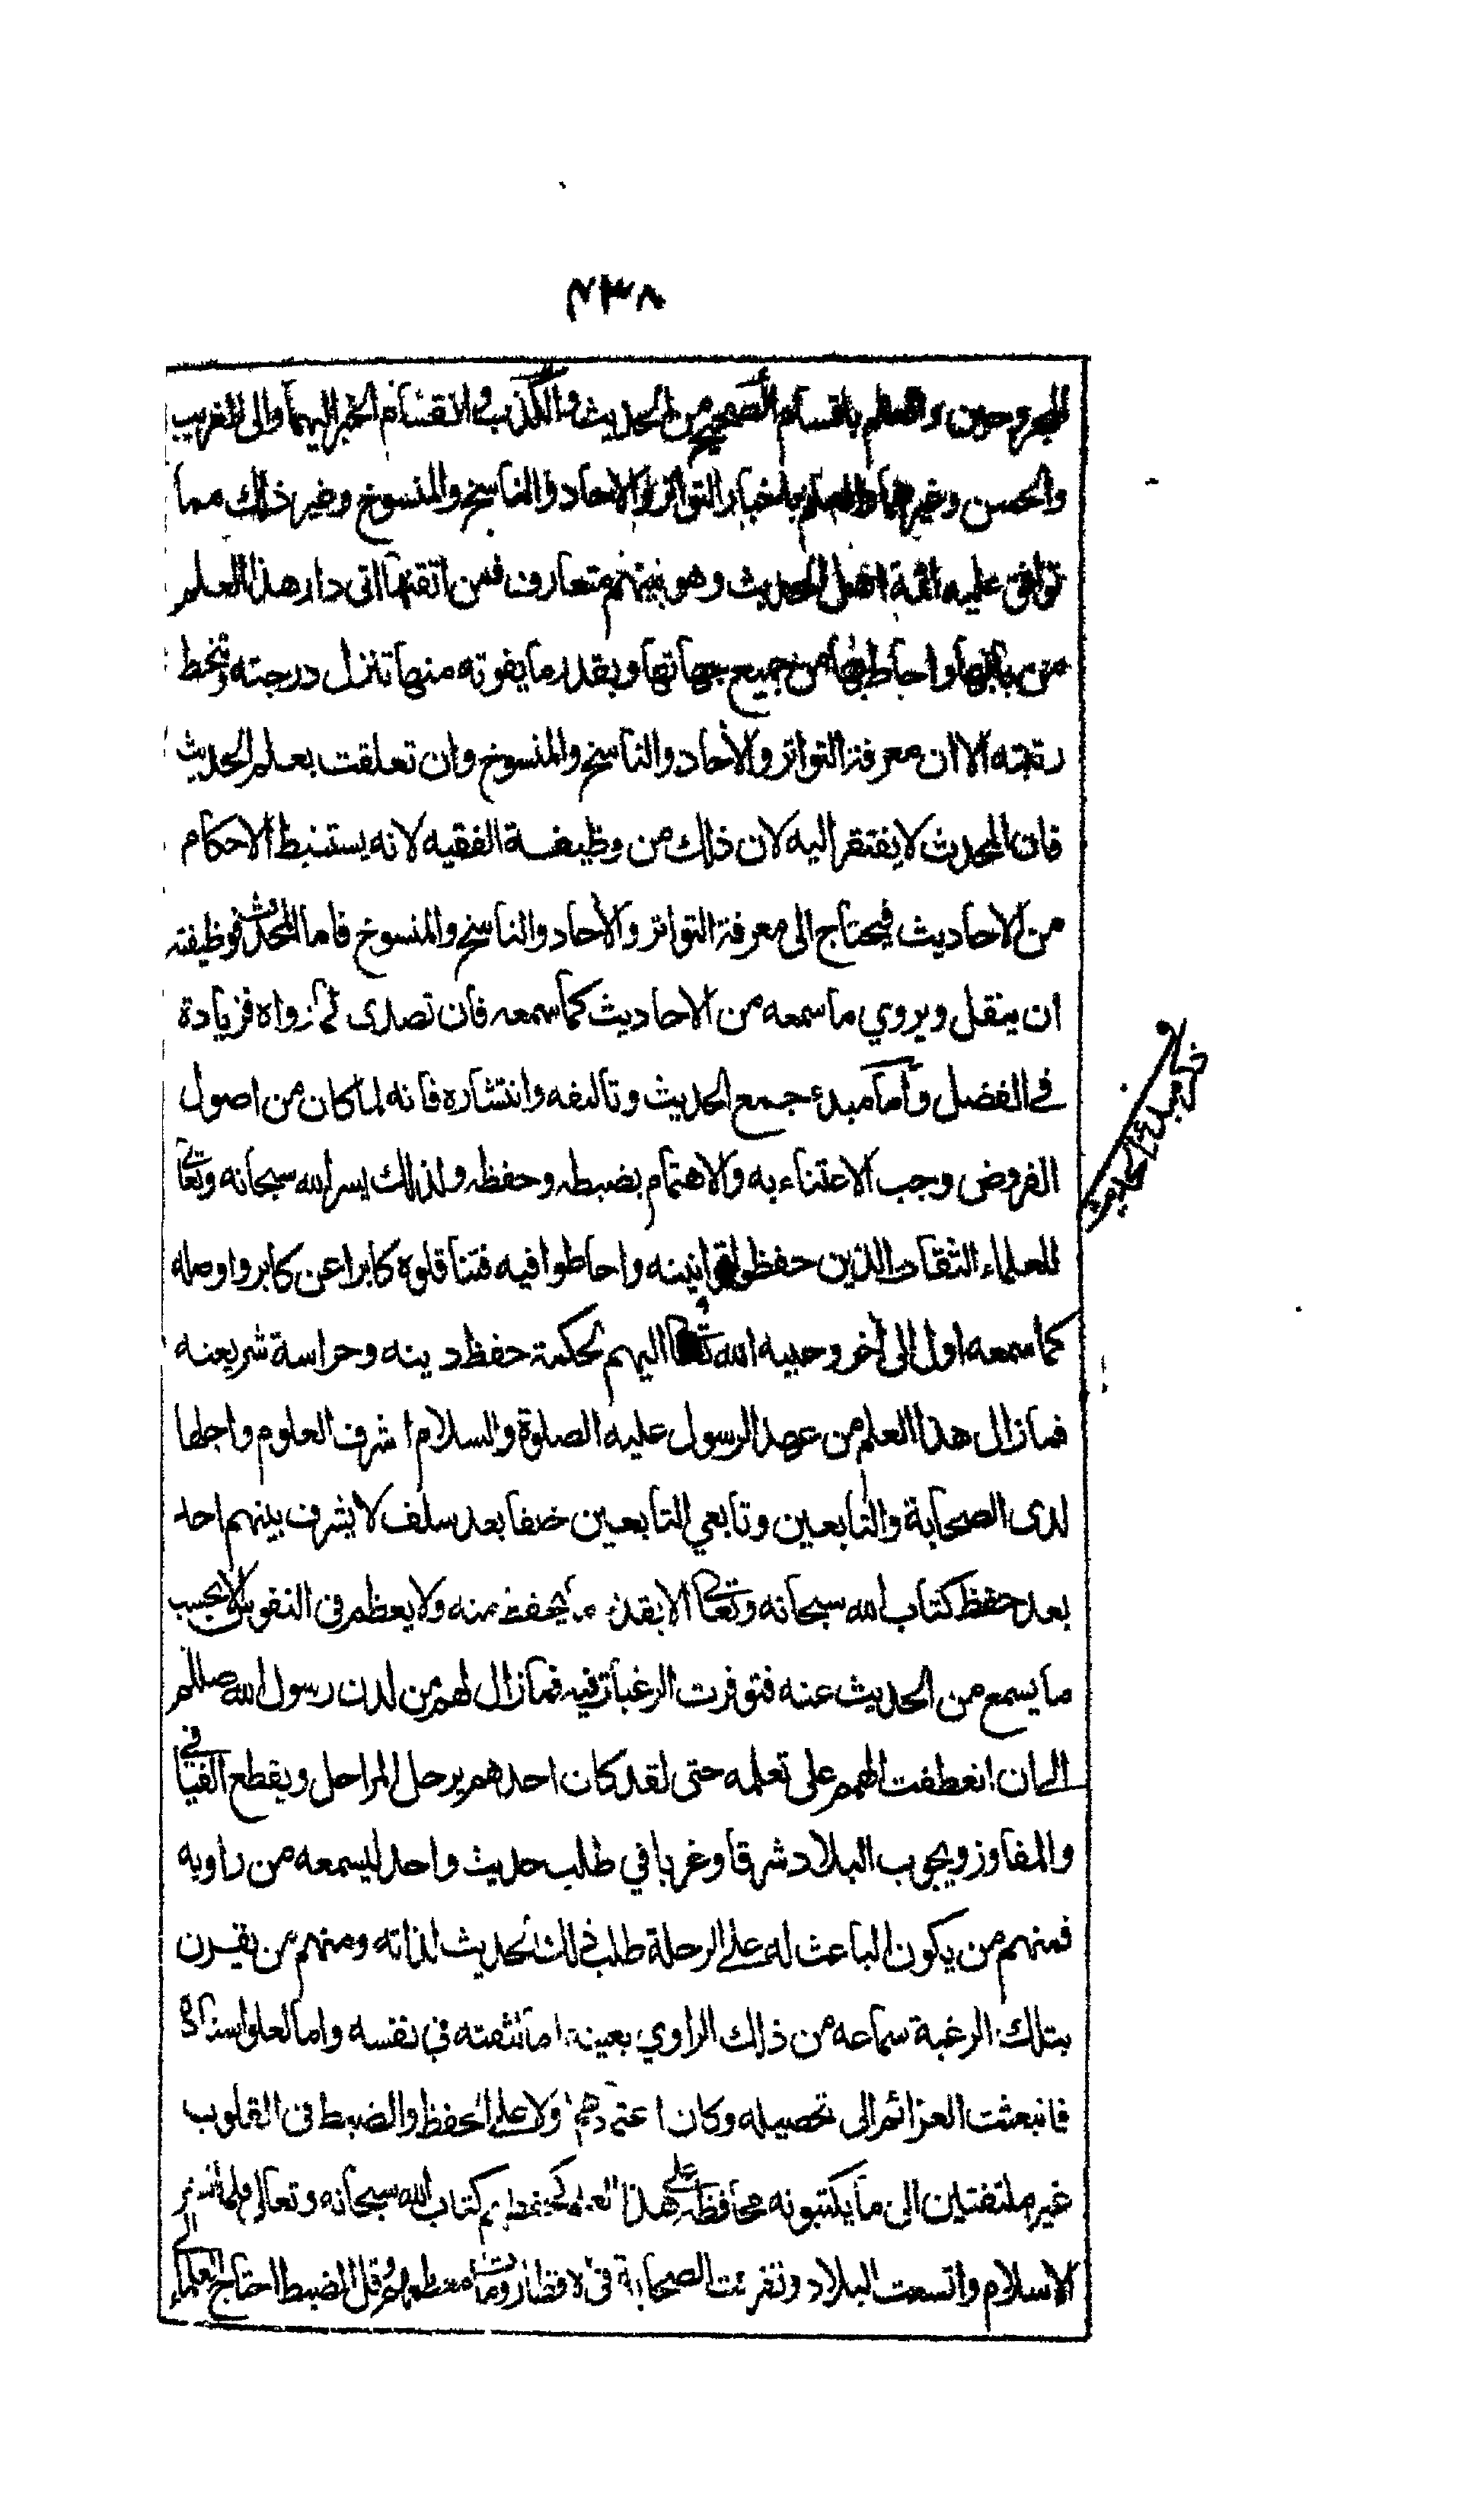 ٧٣٨
المجروحين والعلم باقسام الصحيح من الحديث والكذب وانقسام الخبر اليهما والى الغريب
والحسن وغيرهما والعلم باخبار التواتر والاحاد والناسخ والمنسوخ وغير ذلك مما
توافق عليه ائمة اهل الحديث وهو بينهم متعارف فمن اتقنها اتى دار هذا العلم
من بابها واحاط بها من جميع جهاتها وبقدر ما يفوته منها تنزل درجته وتنحط
رتبته الا ان معرفة التواتر والأحاد والناسخ والمنسوخ وان تعلقت بعلم الحديث
فان المحدث لا يفتقر اليه لان ذلك من وظيفة الفقيه لانه يستنبط الاحكام
من الاحاديث فيحتاج الى معرفة التواتر والأحاد والناسخ والمنسوخ فاما المحدث فوظيفته
ان ينقل ويروي ما سمعه من الاحاديث كما سمعه فان تصدى لما رواه فزيادة
في الفضل وأما مبدء جمع الحديث وتاليفه وانتشاره فانه لما كان من اصول
الفروض وجب الاعتناء به والاهتمام بضبطه وحفظه ولذلك يسر الله سبحانه وتعالى
للعلماء الثقات الذين حفظوا قوانينه واحاطوا فيه فتناقلوه كابرا عن كابر واوصله
كما سمعه اول الى أخر وحببه الله تعالى اليهم لحكمة حفظ دينه وحراسة شريعته
فما زال هذا العلم من عهد الرسول عليه الصلوة والسلام اشرف العلوم واجلها
لدى الصحابة والتابعين وتابعي التابعين خلفا بعد سلف لا يشرف بينهم احد
بعد حفظ كتاب الله سبحانه وتعالى الا بقدر ما يحفظ منه ولا يعظم في النفوس الا بحسب
ما يسمع من الحديث عنه فتوفرت الرغبات فيه فما زال لهم من لدن رسول الله صللم
الى ان انعطفت الهمم على تعلمه حتى لقد كان احدهم يرحل المراحل ويقطع الفيافي
والمفاوز ويجوب البلاد شرقا وغربا في طلب حديث واحد ليسمعه من راويه
فمنهم من يكون الباعث له على الرحلة طلب ذلك الحديث لذاته ومنهم من يقرن
بتلك الرغبة سماعه من ذلك الراوي بعينه اما لثقته في نفسه واما لعلو اسناده
فانبعثت العزائم الى تحصيله وكان اعتمادهم اولا على الحفظ والضبط في القلوب
غير ملتفتين الى ما يكتبونه محافظة على هذا العلم كحفظهم كتاب الله سبحانه وتعالى فلما انتشر
الاسلام واتسعت البلاد وتفرقت الصحابة في الاقطار ومات معظمهم وقل الضبط احتاج العلماء الى